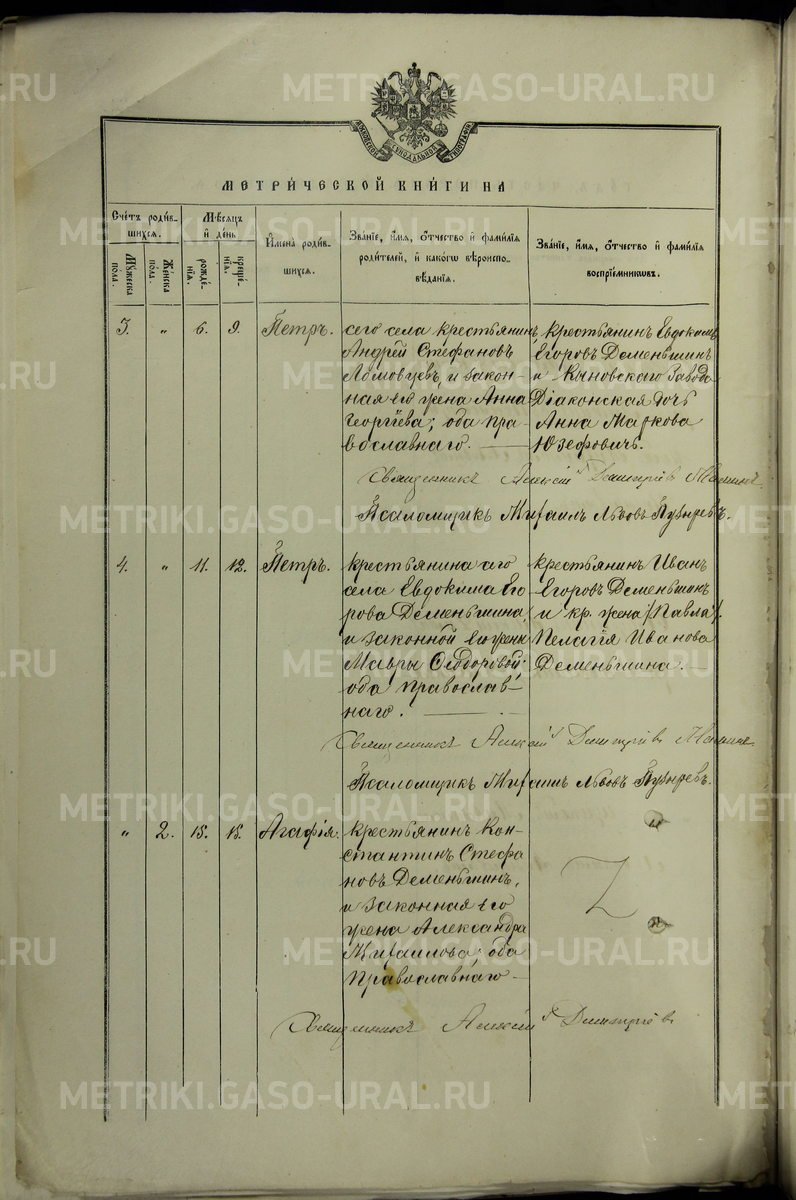 METRIKI.GASO-URAL.RU
МОСКОВСКОЙ СѴНОДАЛЬНОЙ ТИПОГРАФІИ
МЕТРИ́ЧЕСКОЙ КНИ́ГИ НА́
Сче́тъ роди́в-
шихсѧ.
Мꙋ́жеска по́ла.
Же́нска по́ла.
Мѣ́сѧцъ
и҆ де́нь
рожде́-
нїѧ.
креще́-
нїѧ.
И҆мена̀ роди́в-
шихсѧ.
Зва́нїе, и҆́мѧ, ѻ҆́тчество и҆ фами́лїѧ
роди́телей, и҆ како́гѡ вѣроиспо-
вѣ́данїѧ.
Зва́нїе, и҆́мѧ, ѻ҆́тчество и҆ фами́лїѧ
воспрїе́мниковъ.
3. „ 6. 9. Петръ.
сего села крестьянинъ
Андрей Стефановъ
и закон-
ная его жена Анна
Георгіева; оба пра-
вославнаго.
крестьянинъ Евдокимъ
Егоровъ Деменьшинъ
и Кыновскаго Завода
Діаконская дочь
Анна Маркова
Юзефовичъ.
Священникъ Алексій Димитріевъ
Псаломщикъ Михаилъ Львовъ
4. „ 11. 12. Петръ.
крестьянина
села Евдокима Его
рова Деменьшина,
и законной его жены
Мавры Ѳеодоровой
оба православ-
наго.
крестьянинъ Иванъ
Егоровъ Деменьшинъ
и кр. жена (Павла)
Пелагія Иванова
Деменьшина.
Священникъ Алексій Димитріевъ
Псаломщикъ Михаилъ Львовъ
„ 2. 15. 15. Агафія.
крестьянинъ Кон-
стантинъ Стефа
новъ Деменьшинъ,
и законная его
жена Александра
Михаилова; оба
православнаго
Священникъ Алексій Димитріевъ